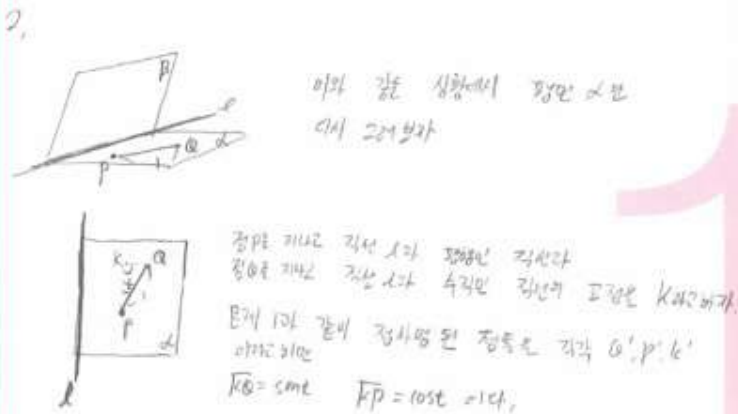 2.
β
l
Q
α
P
이와 같은 상황에서 평면 α만
다시 그려보자
K
Q
t
1
P
α
l
점P를 지나고 직선 l과 평행인 직선과
점Q를 지나고 직선 l과 수직인 직선의 교점을 K라고하자.
문제 1과 같이 정사영 된 점들을 각각 Q', P', K'
이라고 하면
KQ = sint KP = cost 이다.
1